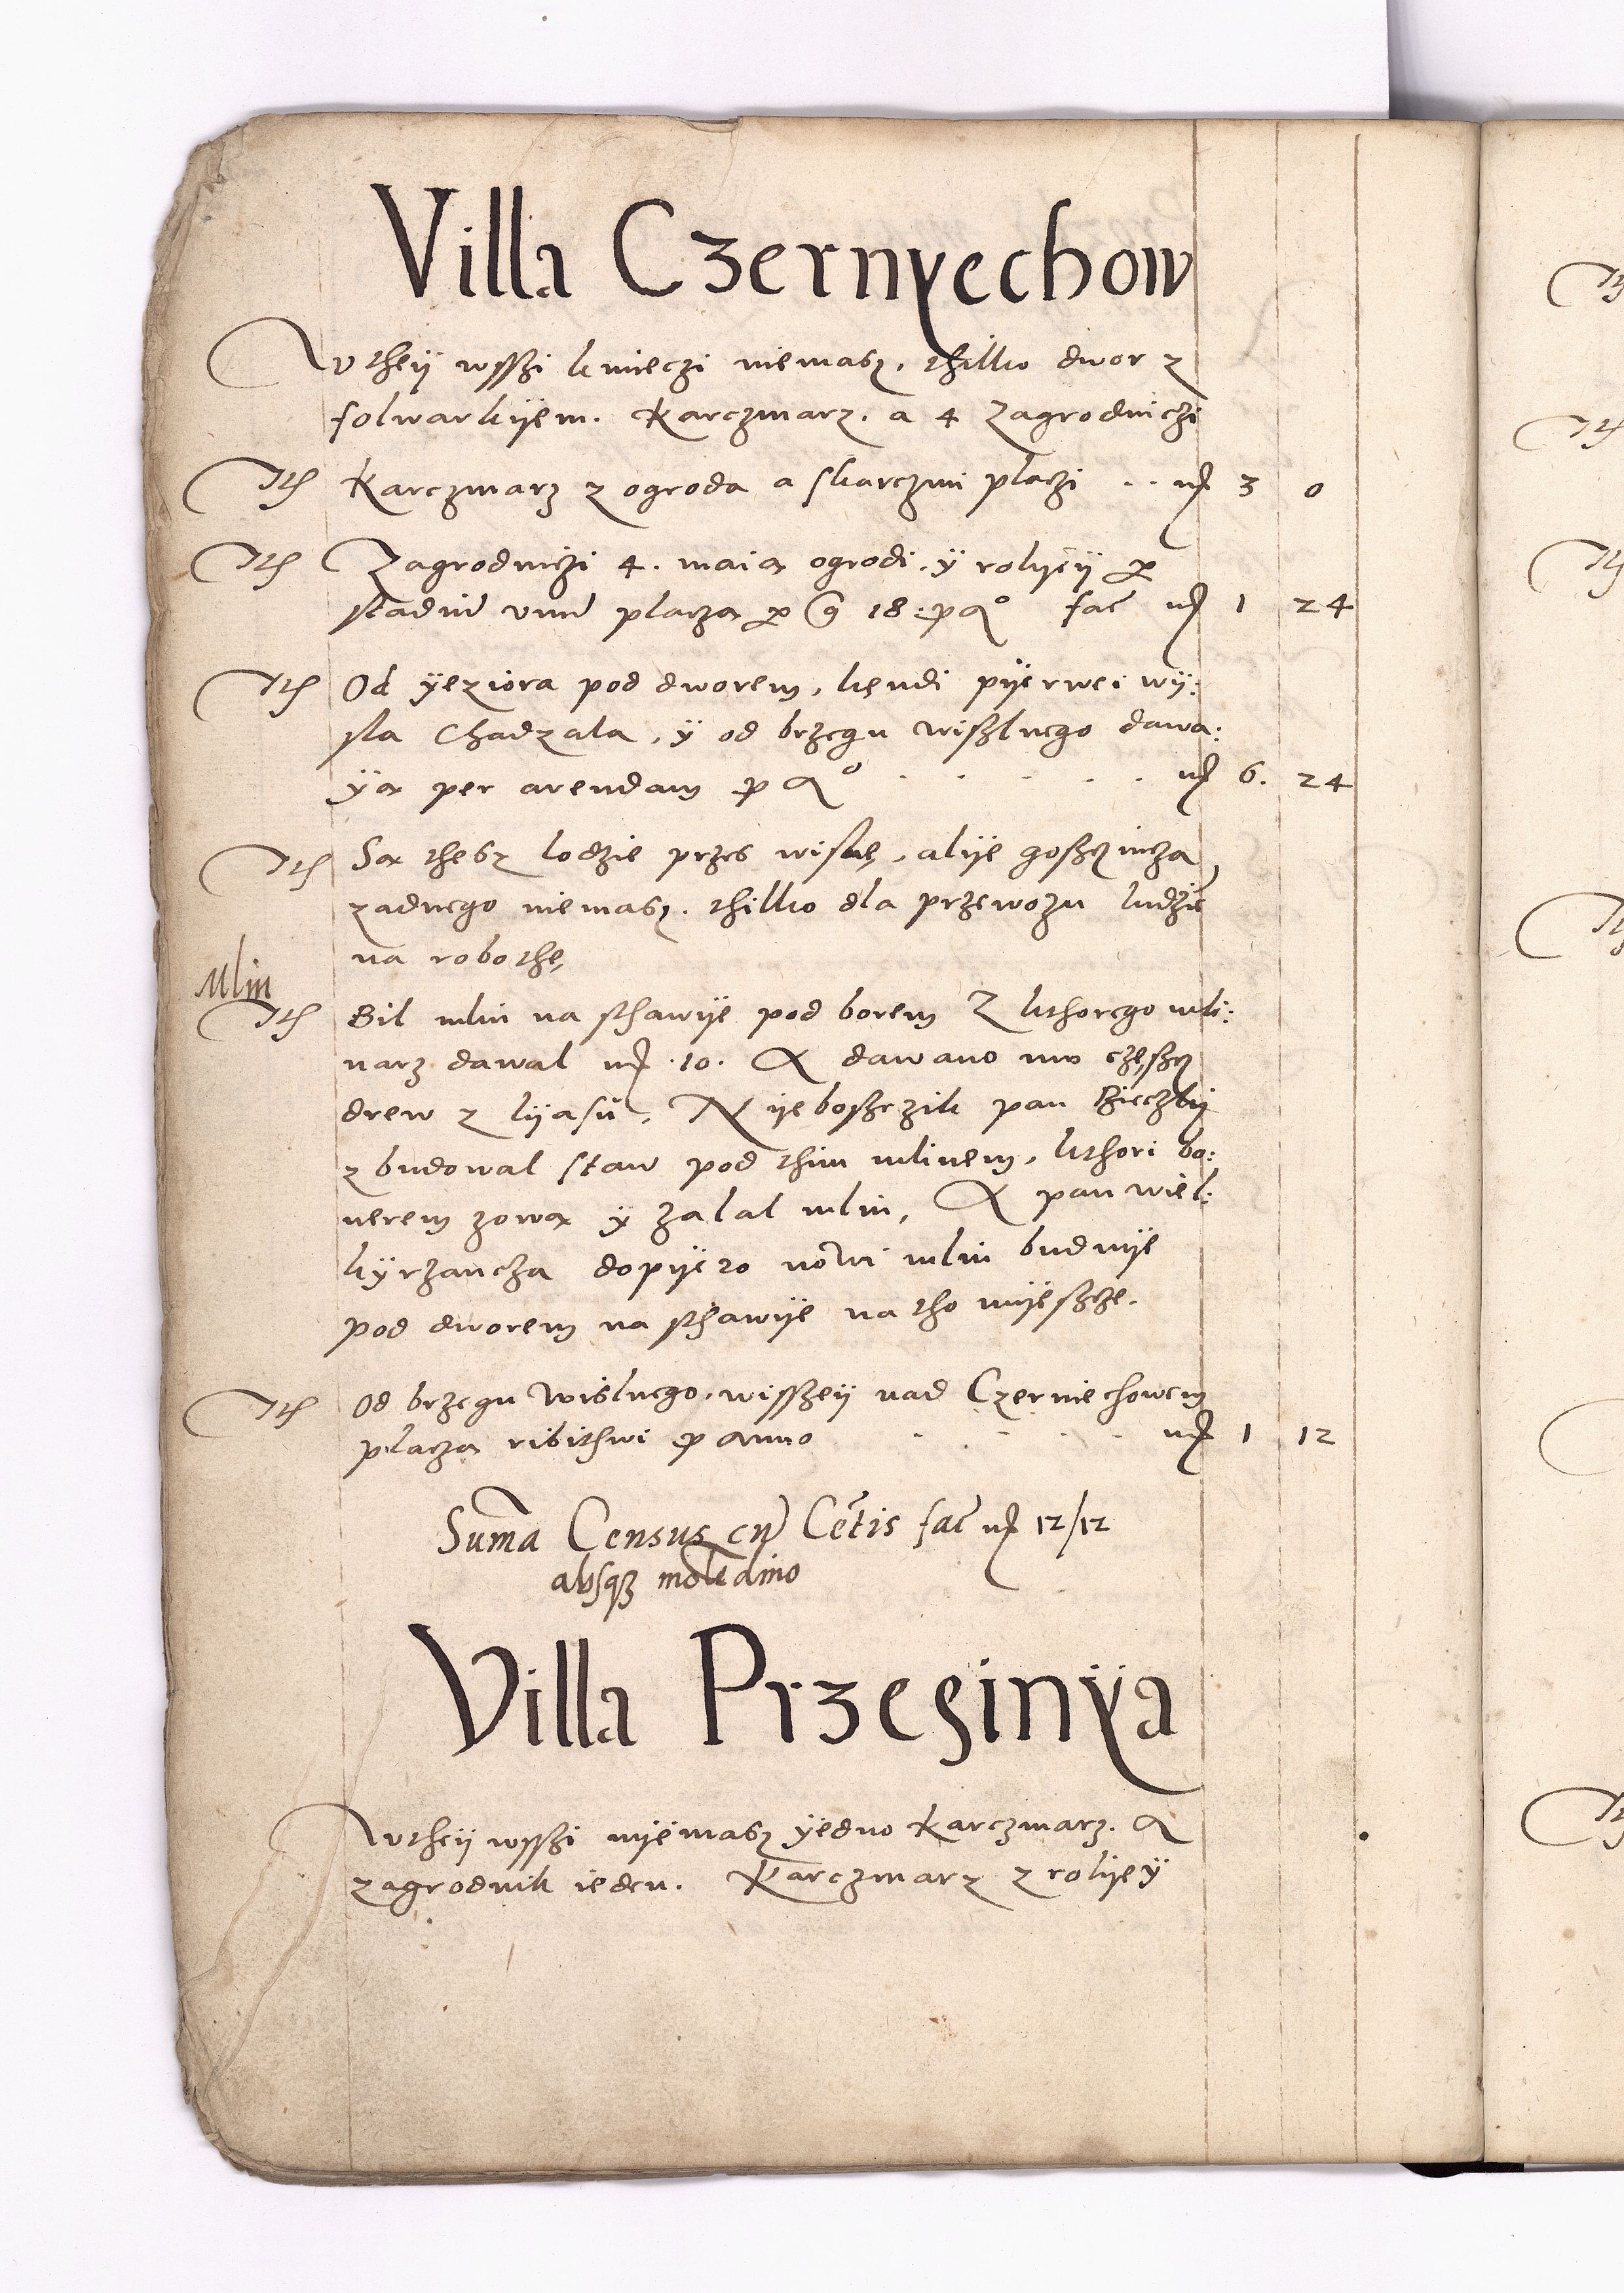 Villa Czernyechow
W theÿ wsſzi kmieczi niemasz, thilko dwor z
folwarkÿem. Karczmarz. a 4 Zagrodniczi
Ith Karczmarz z ogroda a skarczmi placzi .. mͬ 3 0
Ith Zagrodniczi 4. maią ogrodi, ÿ rolÿeÿ ꝑ
stadiuͫ vnuͫ placzą ꝑ g 18. ꝓ aͦ facͭ mͬ 1 24
Ith Od ÿeziora pod dworem, kendi pÿerwei wÿ:
sla Chadzala, ÿ od brzegu wiszlnego dawa:
ÿą per arendam ꝓ aͦ . . . . . mͬ 6. 24
Ith Są thesz lodzie przes wislię, alÿe gosczincza
zadnego niemasz. thilko dla przewozu ludzie
na robothę
Mlin
Ith Bil mlin na sthawÿe pod borem Z kthorego mli:
narz dawal mͬ .10. A dawano mu częscz
drew z lÿasu, Nÿebosczik pan Bieczkÿ
zbudowal staw pod thim mlinem, kthori bo:
nerem zową ÿ zalal mlin, A pan wiel:
kÿrzancza dopÿero nowi mlin buduÿe
pod dworem na sthawÿe na tho mÿescze.
Ith Od brzegu Wislnego, wisszeÿ nad Czerniechowem
placza ribithwi ꝓ anno . . . . . mͬ 1 12
Suma̅ Census cuͫ Cet̅is facͭ mͬ 12/12
absqꝫ mole̅dino
Villa Przeginÿa
W theÿ wsſzi nÿemasz ÿedno Karczmarz. A
zagrodnik ieden. Karczmarz z rolÿeÿ